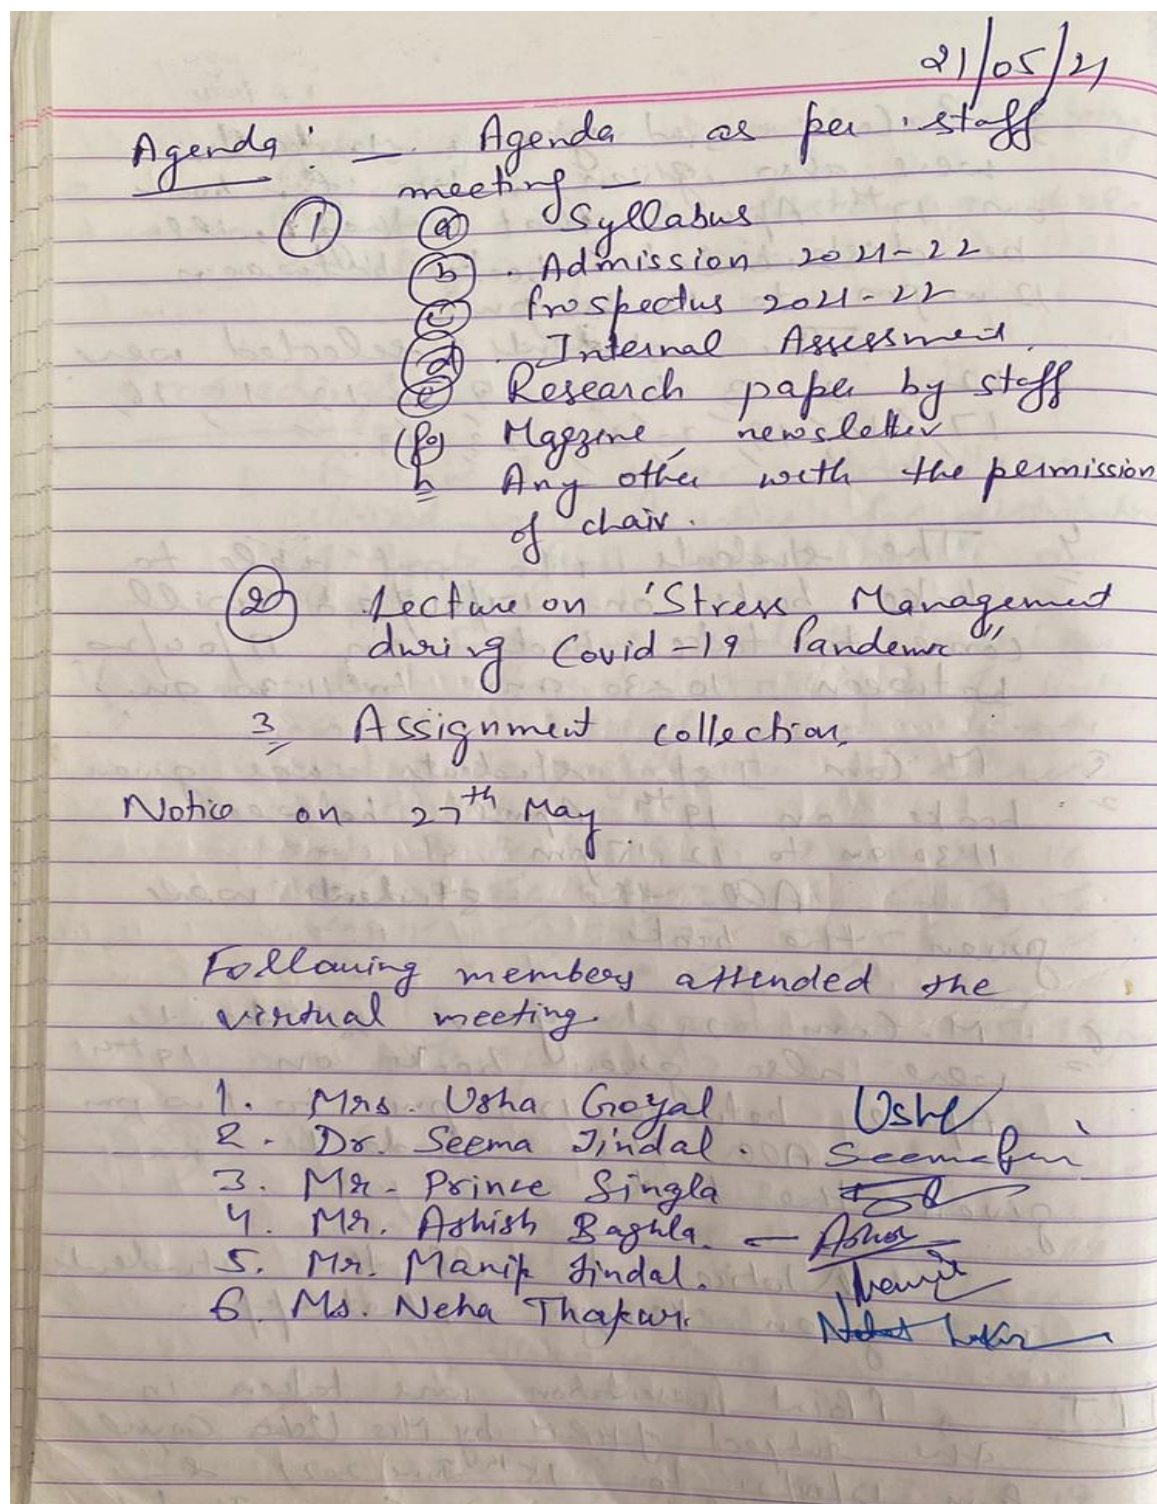 21/05/21
Agenda :- Agenda as per staff
meeting -
① ⓐ Syllabus
ⓑ . Admission 2021-22
ⓒ Prospectus 2021-22
ⓓ . Internal Assessment.
ⓔ Research paper by staff
(fg) Magzine, newsletter
h Any other with the permission
of chair.
② Lecture on 'Stress Management
during Covid-19 Pandemic"
3 Assignment collection.
Notice on 27th May.
Following members attended the
virtual meeting.
1. Mrs. Usha Goyal Usha
2. Dr. Seema Jindal. Seema
3. Mr. Prince Singla
4. Mr. Ashish Baghla. -
5. Mr. Manik Jindal.
6. Ms. Neha Thakur.